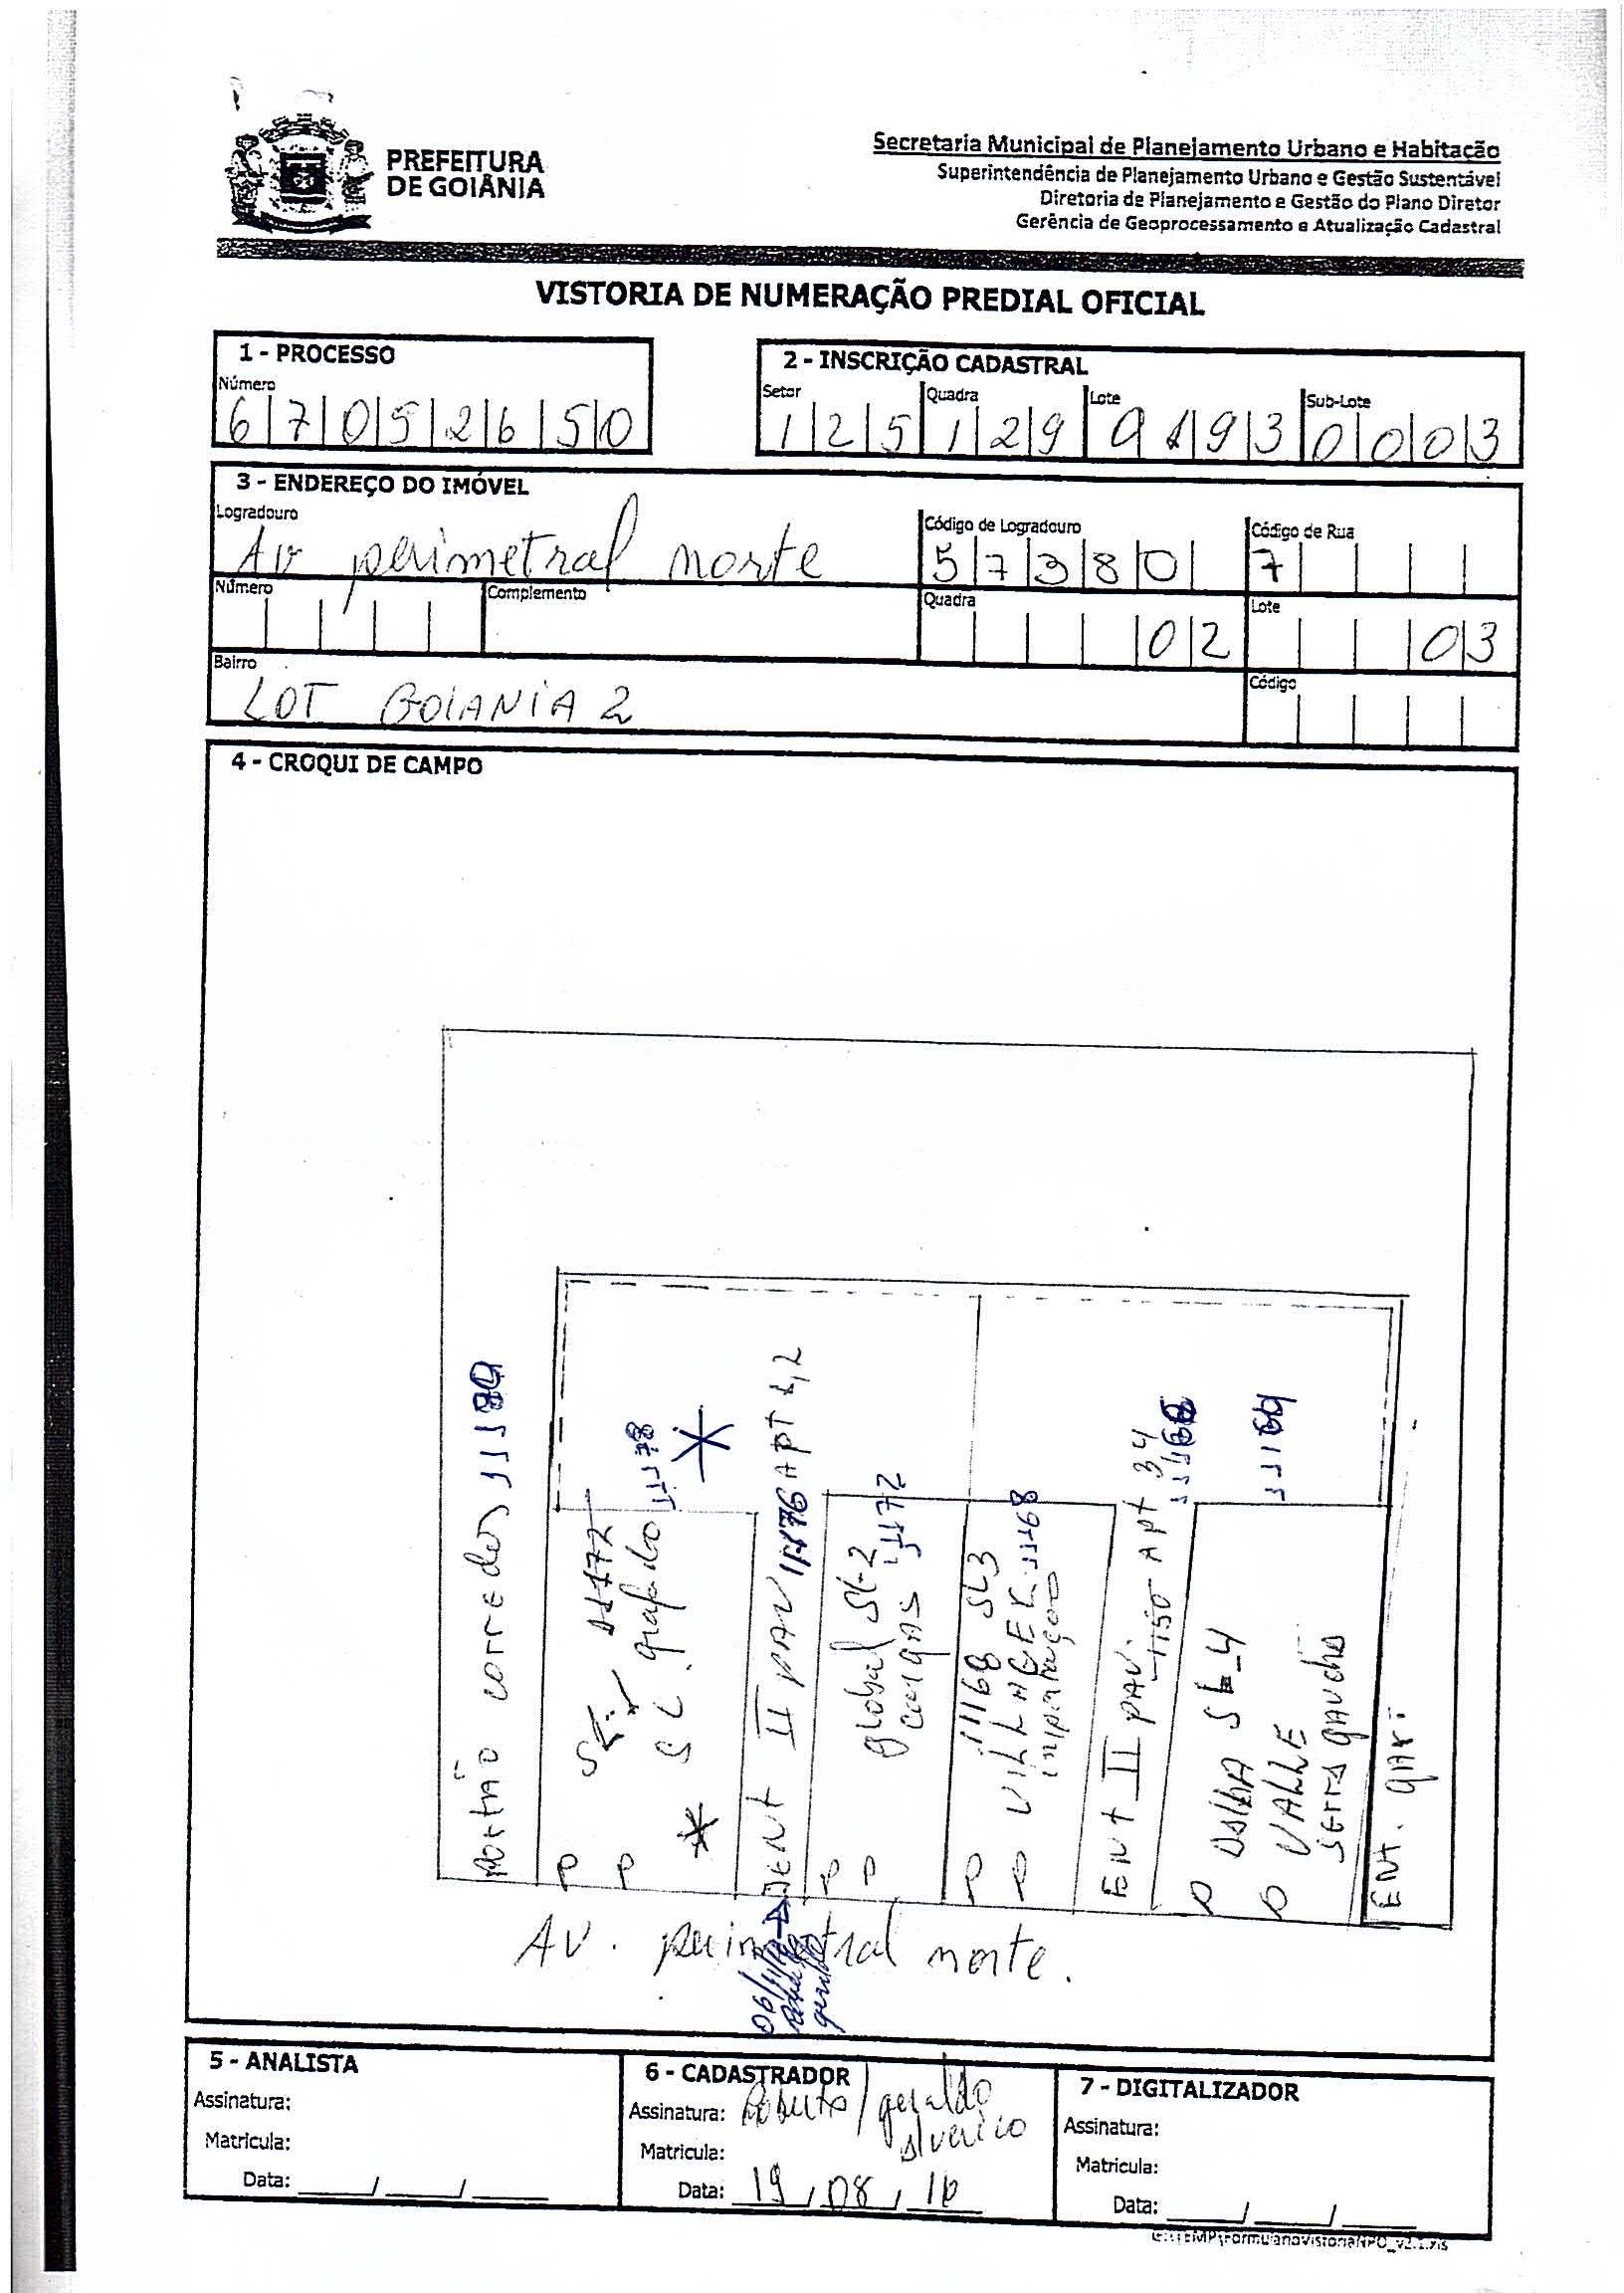 PREFEITURA
DE GOIÂNIA
Secretaria Municipal de Planejamento Urbano e Habitação
Superintendência de Planejamento Urbano e Gestão Sustentável
Diretoria de Planejamento e Gestão do Plano Diretor
Gerência de Geoprocessamento e Atualização Cadastral
VISTORIA DE NUMERAÇÃO PREDIAL OFICIAL
1 - PROCESSO
Número
6 7 0 5 2 6 5 0
2 - INSCRIÇÃO CADASTRAL
Setor Quadra Lote Sub-Lote
1 2 5 1 2 9 0 1 9 3 0 0 0 3
3 - ENDEREÇO DO IMÓVEL
Logradouro Código de Logradouro Código de Rua
Av perimetral norte 5 7 3 8 0 7
Número Complemento Quadra Lote
0 2 0 3
Bairro Código
LOT GOIANIA 2
4 - CROQUI DE CAMPO
portão corredor 11180
11172
SL. grafado 11178
ENt II PAV 11176 APt 1,2
global SL-2
cargas 11172
11168 SL3
VILLAGER 11168
ENt II PAV. 1150 APt 34
SL-4
VALLE
serra gaucha
11164
ENt. gar.
Av. perimetral norte.
geraldo
5 - ANALISTA
Assinatura:
Matricula:
Data: ___/___/___
6 - CADASTRADOR
Assinatura: Roberto / geraldo
Matricula:
Data: 19 / 08 / 16
7 - DIGITALIZADOR
Assinatura:
Matricula:
Data: ___/___/___